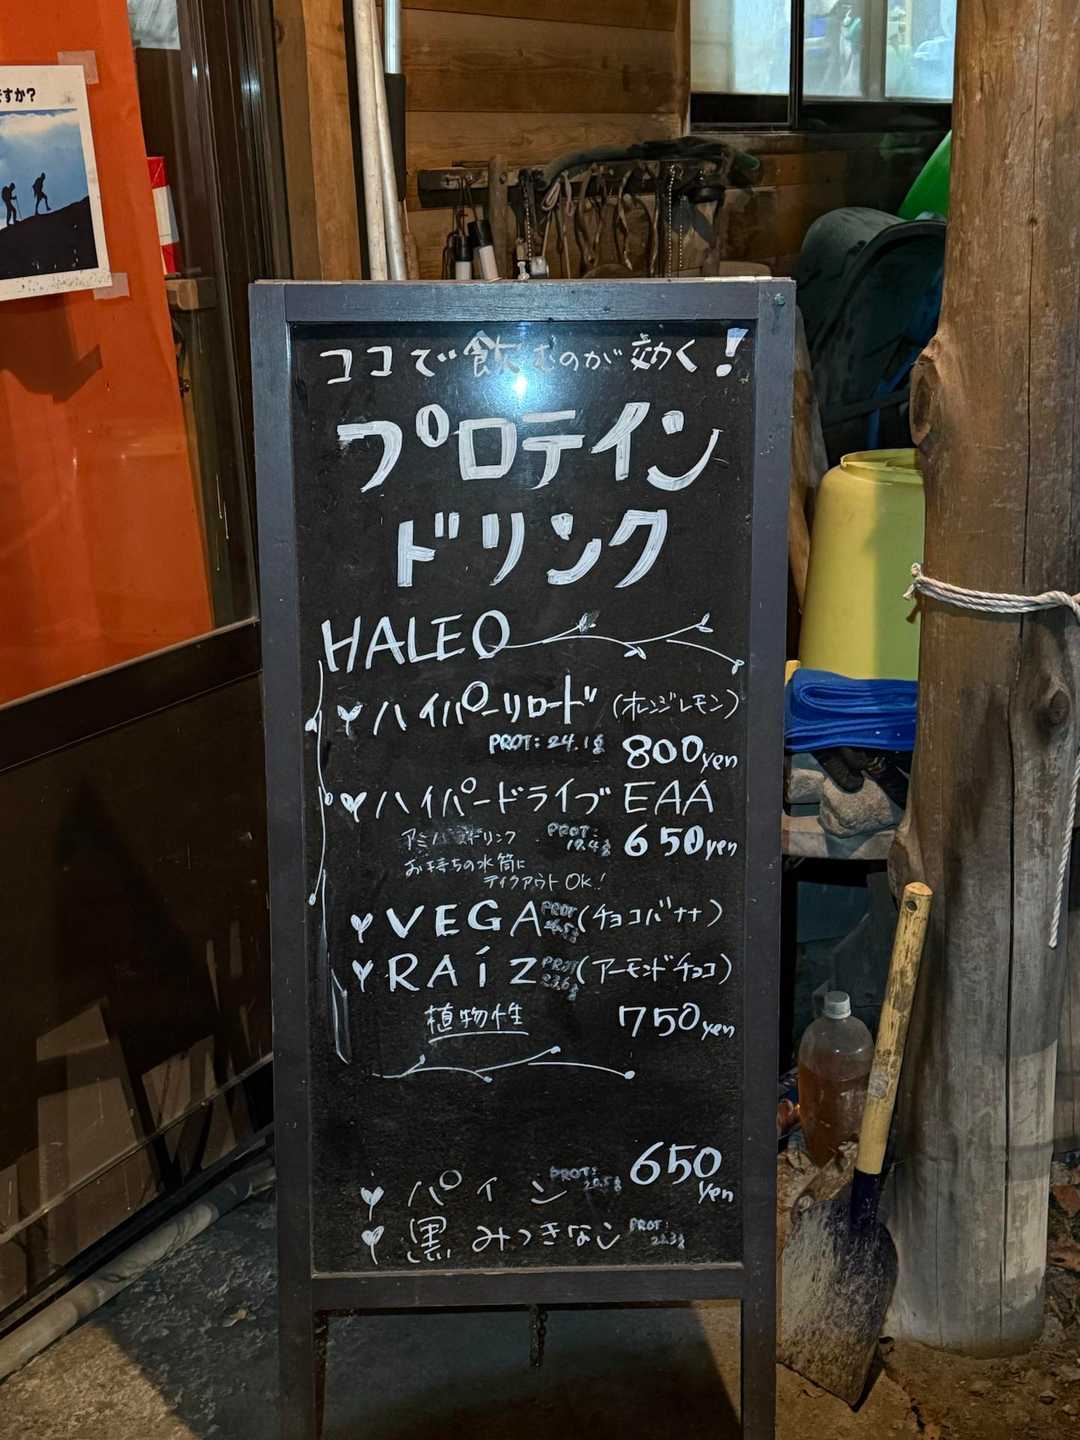 すか?
ココで飲むのが効く!
プロテイン
ドリンク
HALEO
ハイパーリロード (オレンジレモン)
PROT: 24.1g 800yen
ハイパードライブ EAA
ドリンク PROT: 650yen
お持ちの水筒に
テイクアウト OK!
VEGA PROT (チョコバナナ)
RAÍZ PROT 23.6g (アーモンドチョコ)
植物性 750yen
パイン PROT: 650yen
黒みつきなこ PROT: